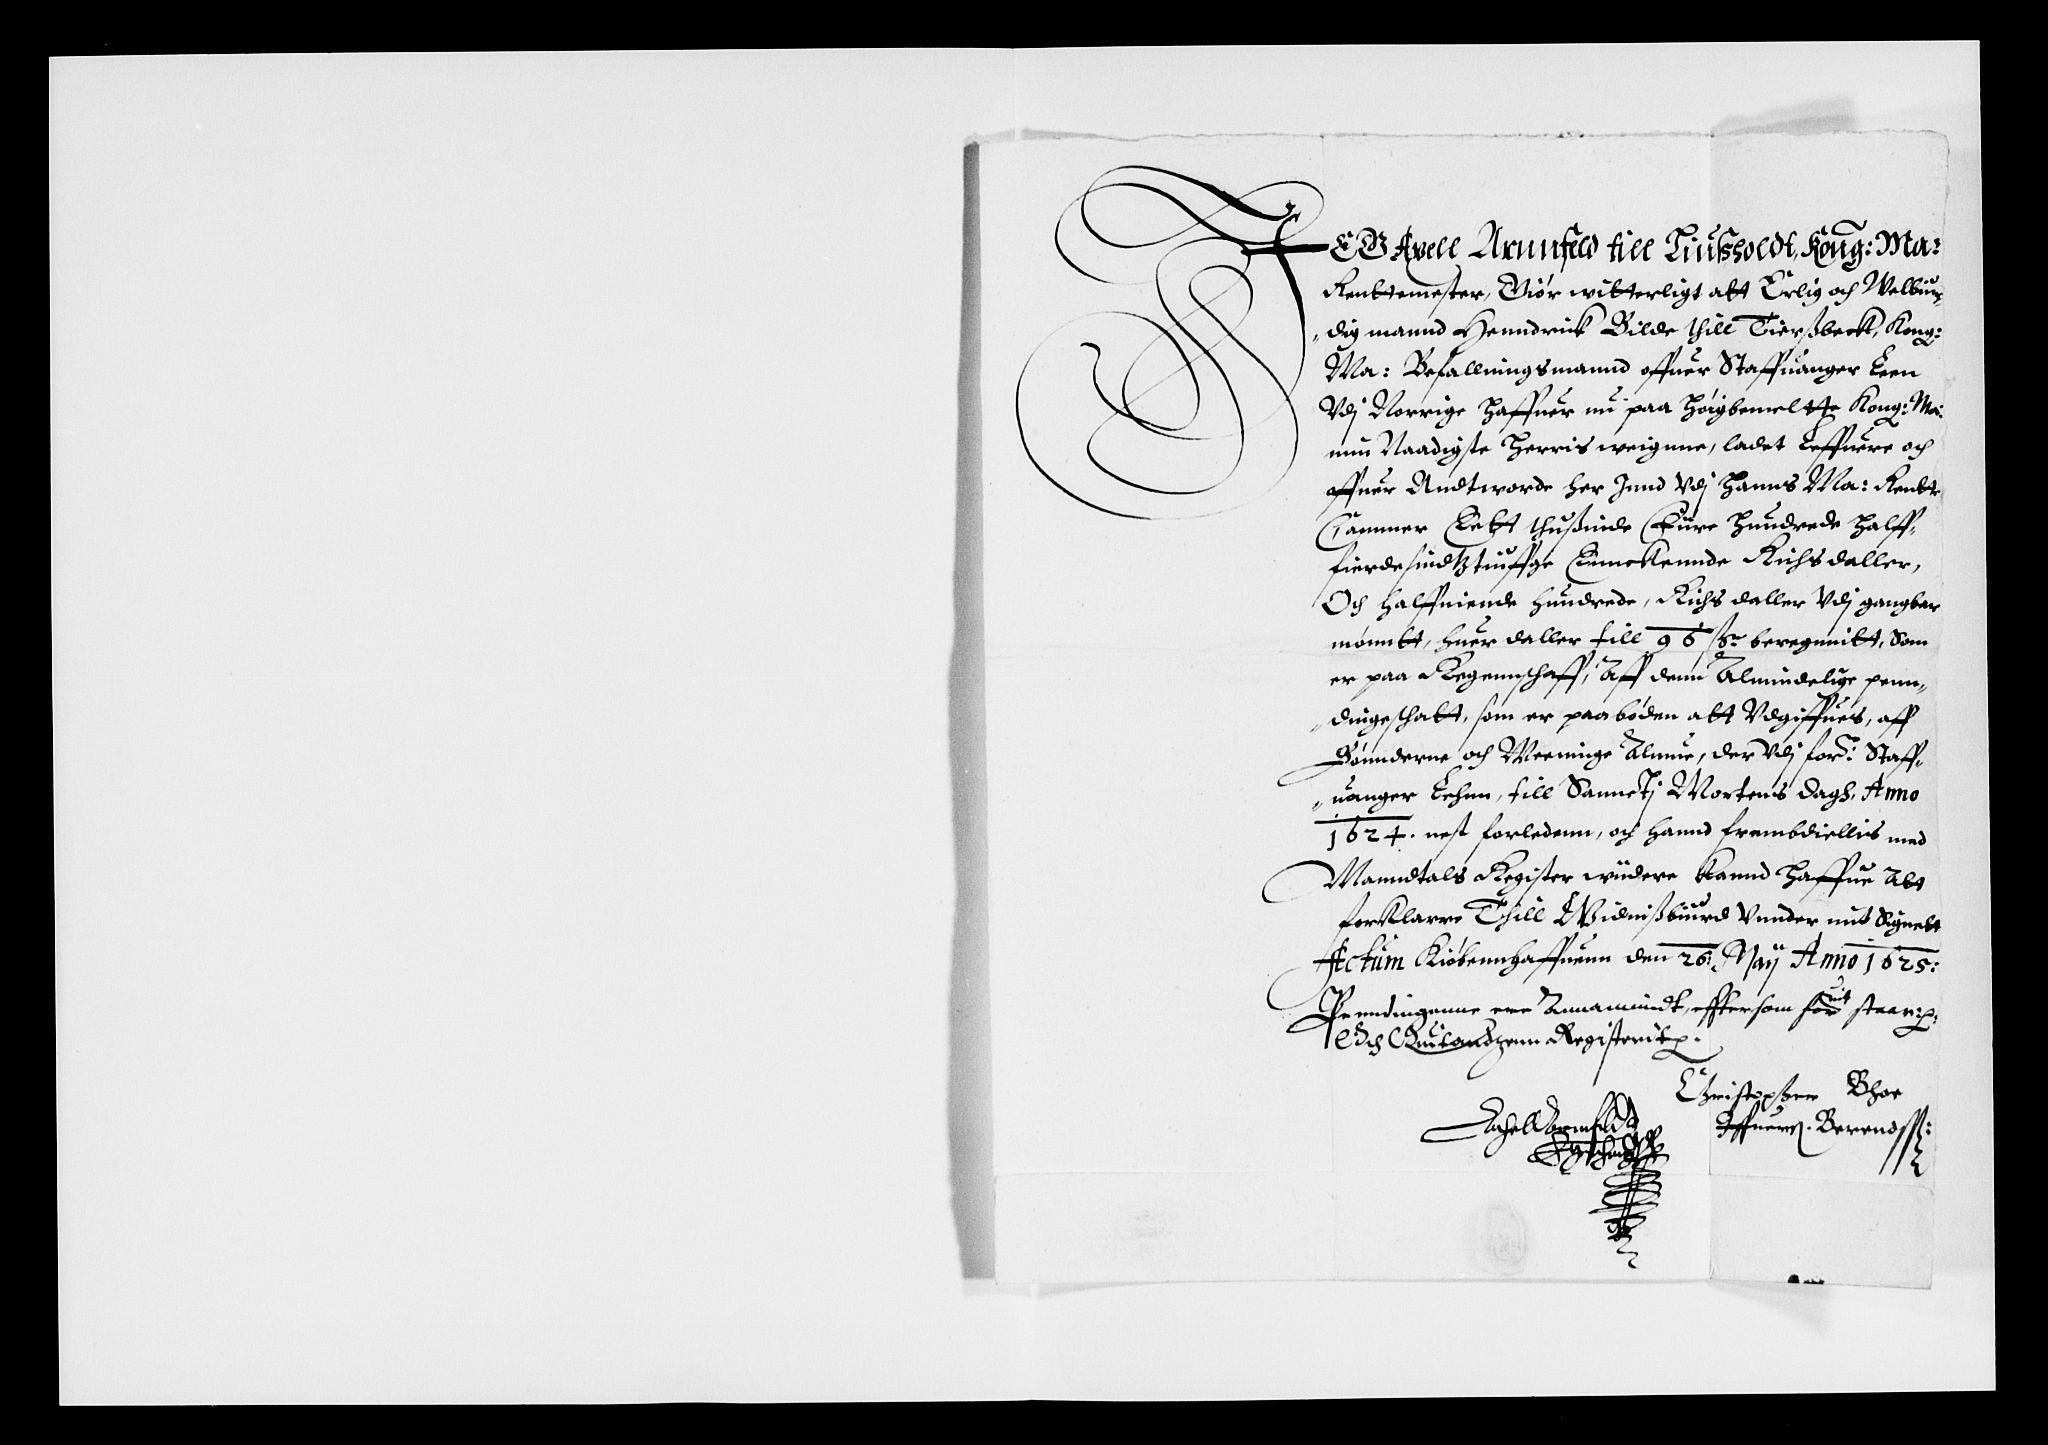 JEG Axell Arennfeld till Tiusholdt, Kong: Ma:
Renttemester, Giör witterligt att Erlig och Welbiur„
„dig mannd Henndrick Bilde thill Tierßbeck, Kong:
Ma: Befallningsmannd offuer Staffuanger Leen
Vdj Norrige haffuer nu paa höigbemeltte Kong: Ma:
min Naadigste Herris weignne, ladet Leffuere och
offuer Andtworde her Jnnd Vdj hanns Ma: Rentte
Cammer Sext thußinde Fiire hundrede halff„
fierdesindtztiuffge Enncklennde Richsdaller,
Och halffniende hundrede, Richsdaller Vdj gangbar
mönntt, huer daller till 96 ß beregnnitt, Som
er paa Regennschaff, Aff denn Almindelige penn„
„dingeschatt, som er paaböden att Vdgiffues, aff
Bönnderne och Meninge Almue, der Vdj ford: Staff„
„uanger Lehnn, till Sanncti Mortens dagh, Anno
1624. nest forledenn, och hannd frembdiellis med
Manndtals Register widere kannd haffue Att
forklarre Thill Widnißbiurd Vnnder mit Signett
Actum Kiöbennhaffuenn den 26. Maij Anno 1625:
Penndingenne ere Annamindt, effttersom for uit staar
och Quitandzenn Registerit
Christopher Bhoe
Axell Arennfeld
Offuers. Berends:
Egehand